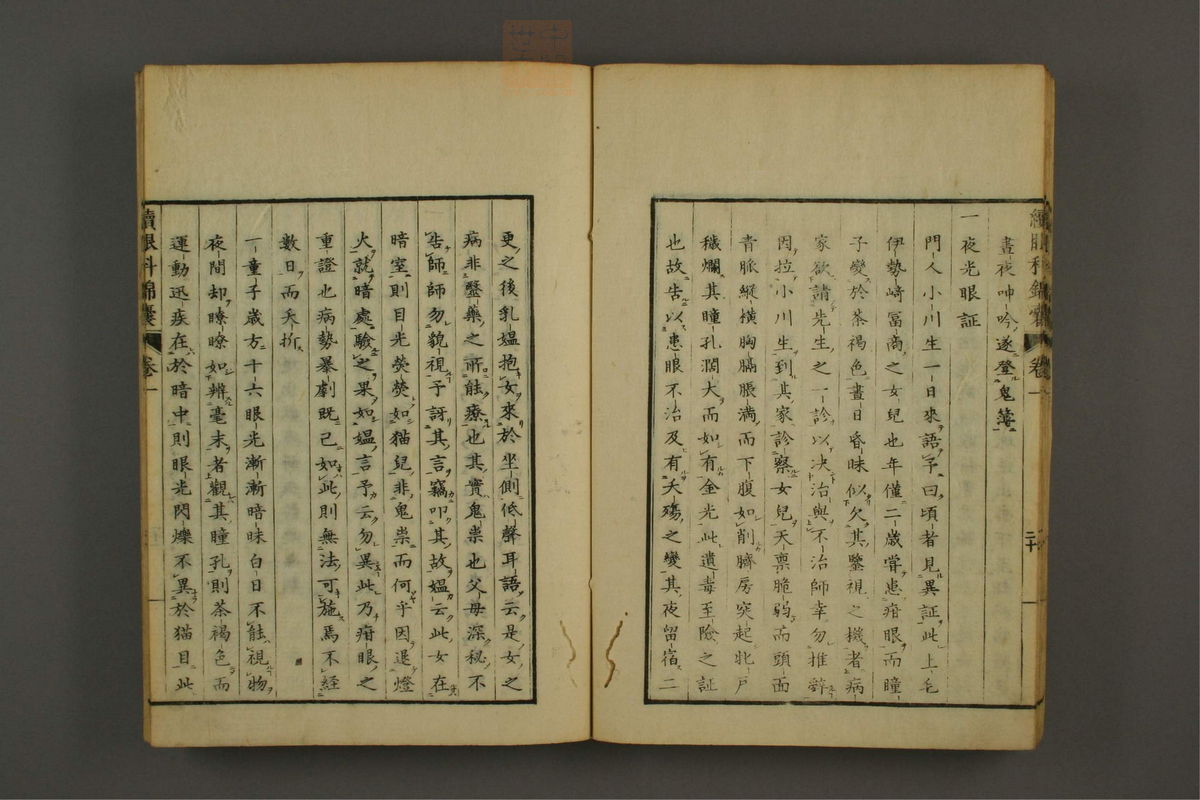 晝夜呻吟遂登鬼簿
一 夜光眼証
門人小川生一日來語予曰頃者見異証此上毛
伊勢崎冨商之女兒也年僅二歳嘗患疳眼而瞳
子變於茶褐色晝日昏昧似欠其鑒視之機者病
家欲請先生之一診以决治與不治師幸勿推辭
因拉小川生到其家診察女兒天禀脆弱而頭面
青脈縱橫胸膈脹满而下腹如削臍房突起牝戸
穢爛其瞳孔濶大而如有金光此遺毒至險之証
也故告以患眼不治及有夭殤之變其夜留宿二
更之後乳媼抱女來於坐側低聲耳語云是女之
病非毉藥之所能療也其實鬼祟也父母深秘不
告師師勿貌視予訝其言竊叩其故媼云此女在
暗室則目光熒熒如猫兒非鬼祟而何乎因退燈
火就暗處驗之果如媼言予云勿異此乃疳眼之
重證也病勢暴劇既已如此則無法可施焉不經
數日而夭折
一童子歳方十六眼光漸漸暗昧白日不能視物
夜間却瞭瞭如辨毫末者觀其瞳孔則茶褐色而
運動迅疾在於暗中則眼光閃爍不異於猫目此
續眼科錦囊 卷一
續眼科錦囊 卷一 二十